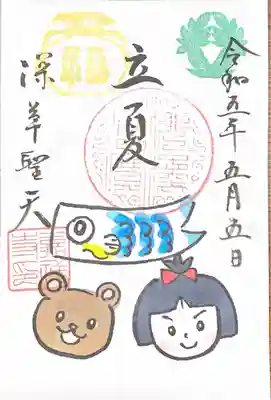 令和五年五月五日
立夏
深草聖天